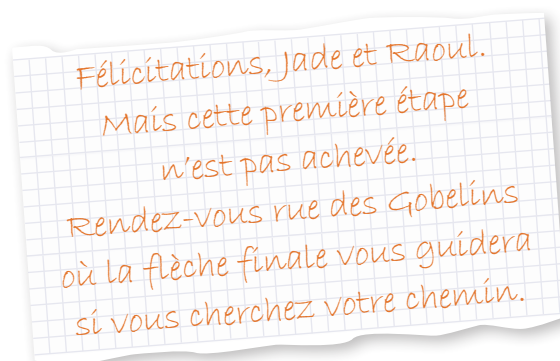 Félicitations, Jade et Raoul.
Mais cette première étape
n'est pas achevée.
Rendez-vous rue des Gobelins
où la flèche finale vous guidera
si vous cherchez votre chemin.